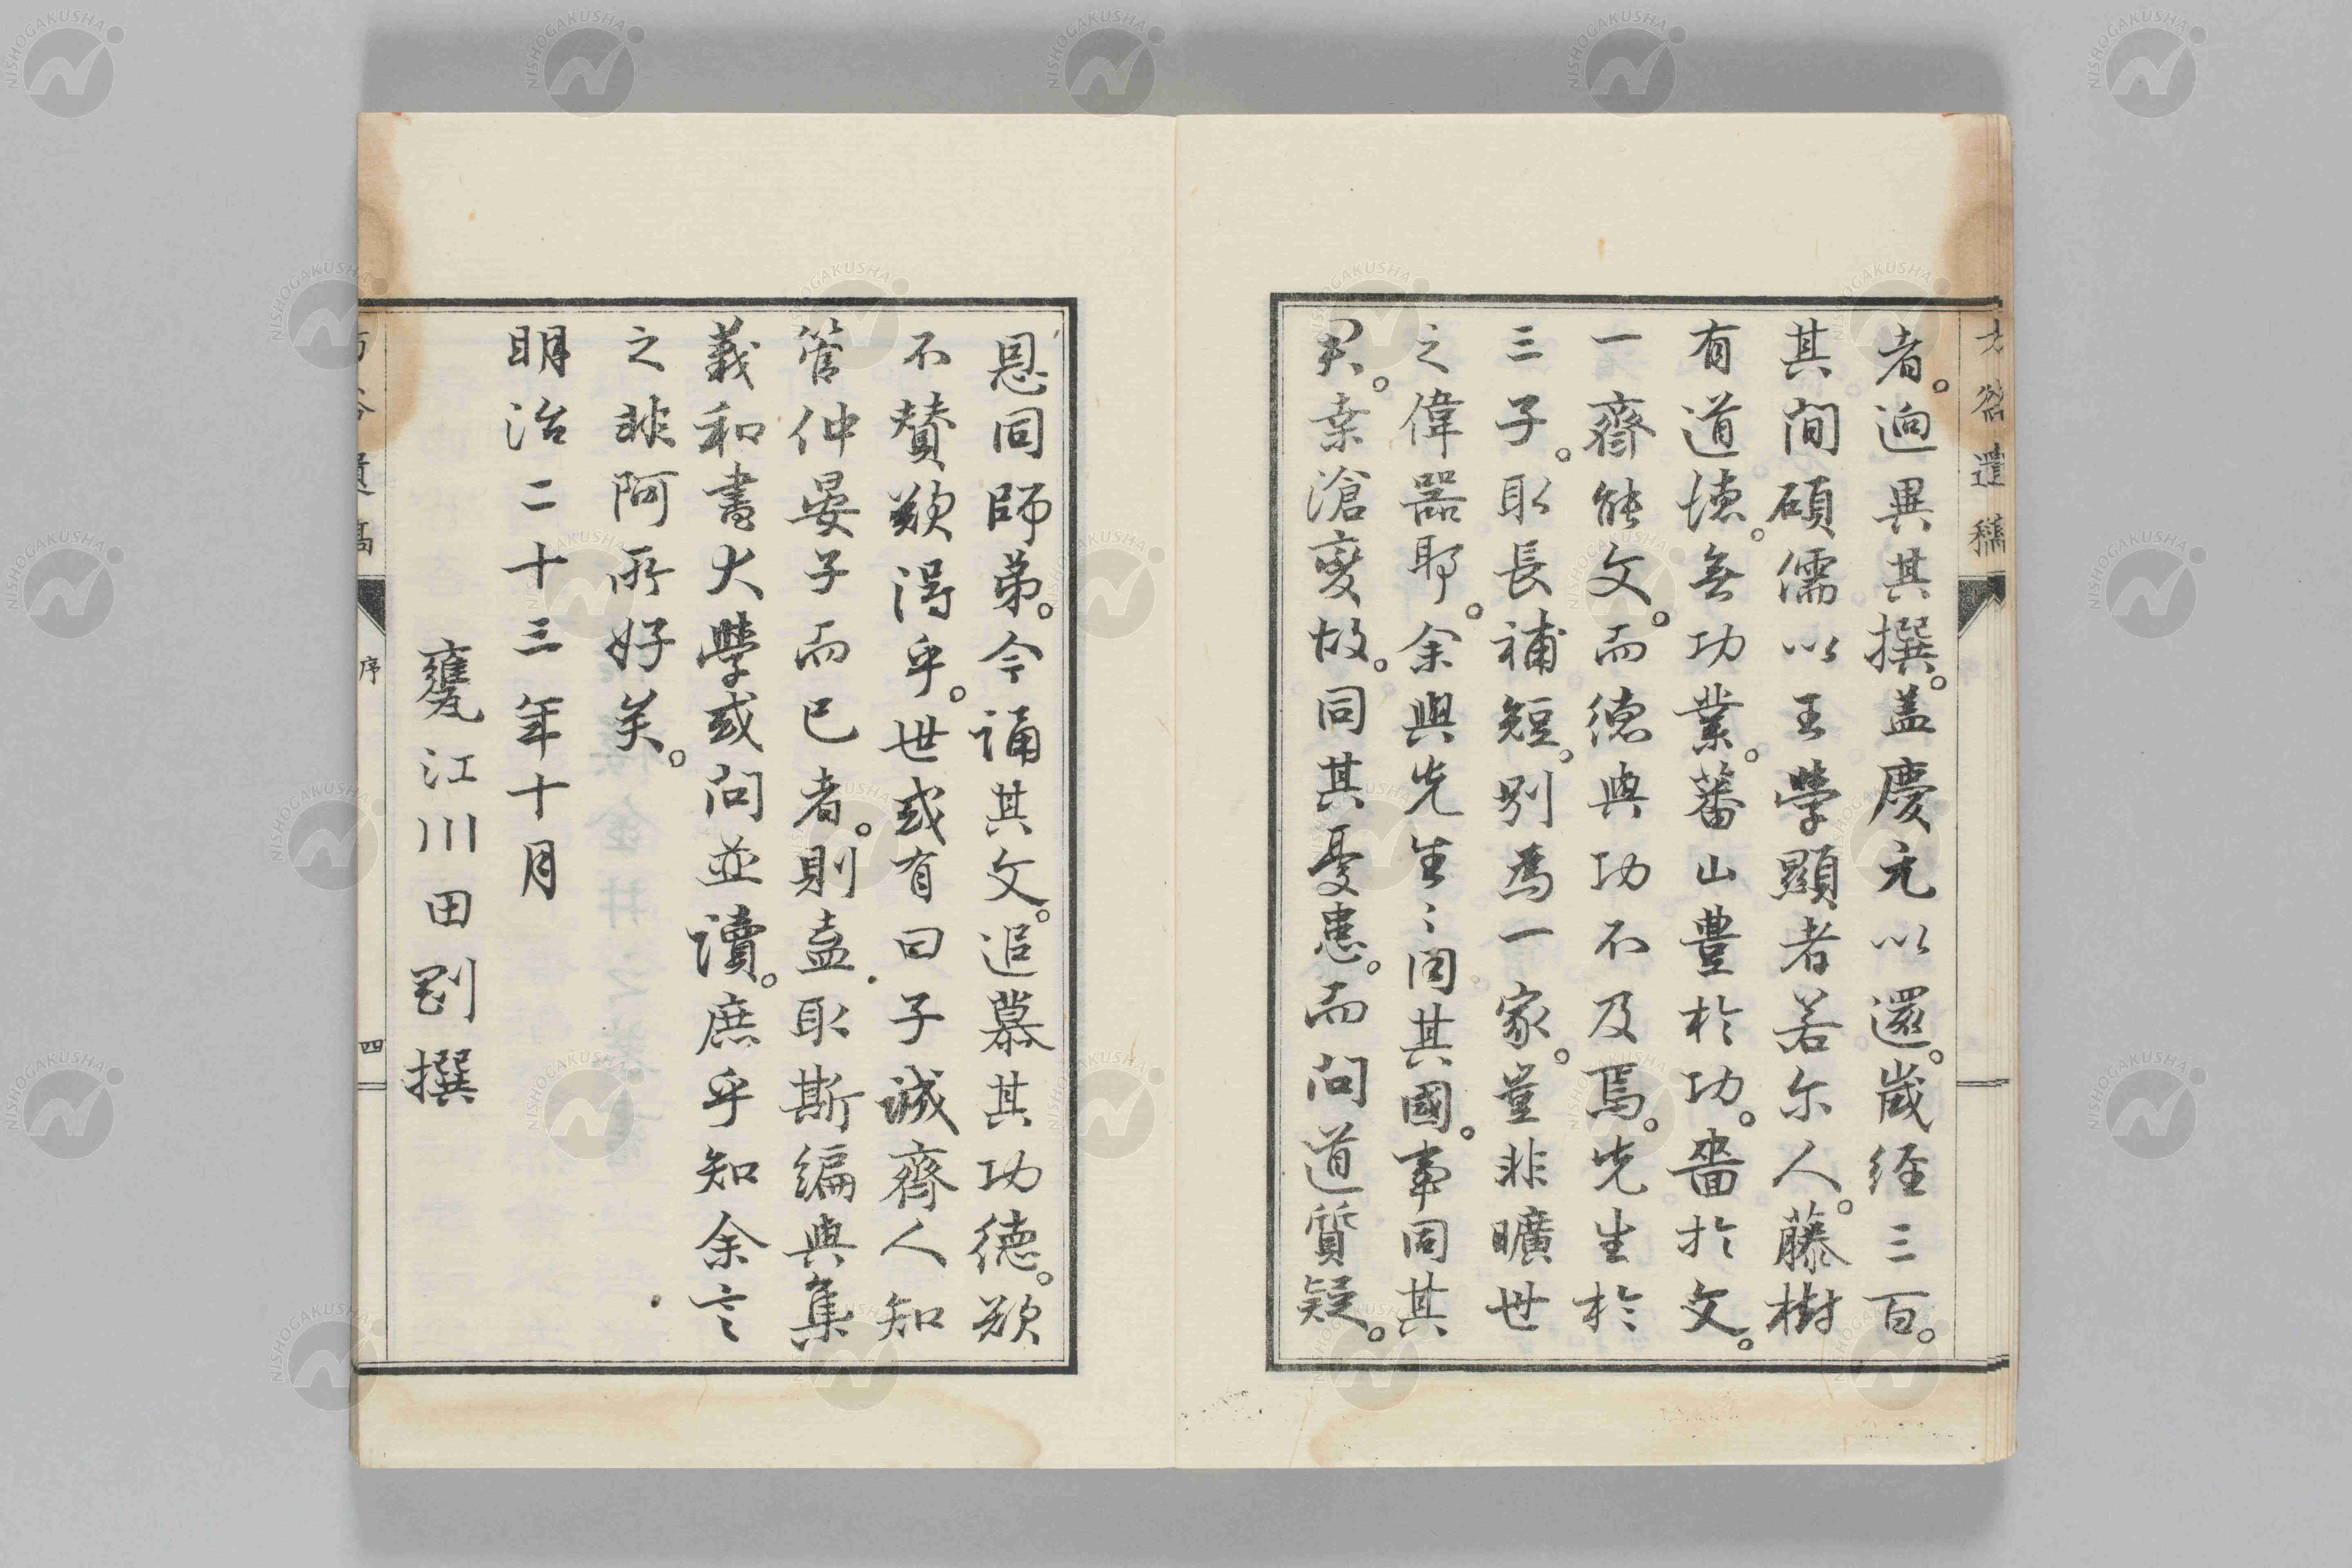 者。迥異其撰。盖慶元以還。歳経三百。
其間碩儒以王學顯者若尓人。藤樹
有道徳。無功業。蕃山豊於功。嗇於文。
一齋能文。而徳與功不及焉。先生於
三子。取長補短。別為一家。豈非曠世
之偉器耶。余與先生〻同其國。事同其
君。桒滄変故。同其憂患。而問道質疑。
恩同師弟。今誦其文。追慕其功徳。欲
不賛歎得乎。世或有曰子誠齊人知
管仲晏子而已者。則盍取斯編與集
義和書大學或問並讀。庶乎知余言
之非阿所好矣。
明治二十三年十月
甕江川田剛撰
方谷遺稿
序
四
NISHOGAKUSHA